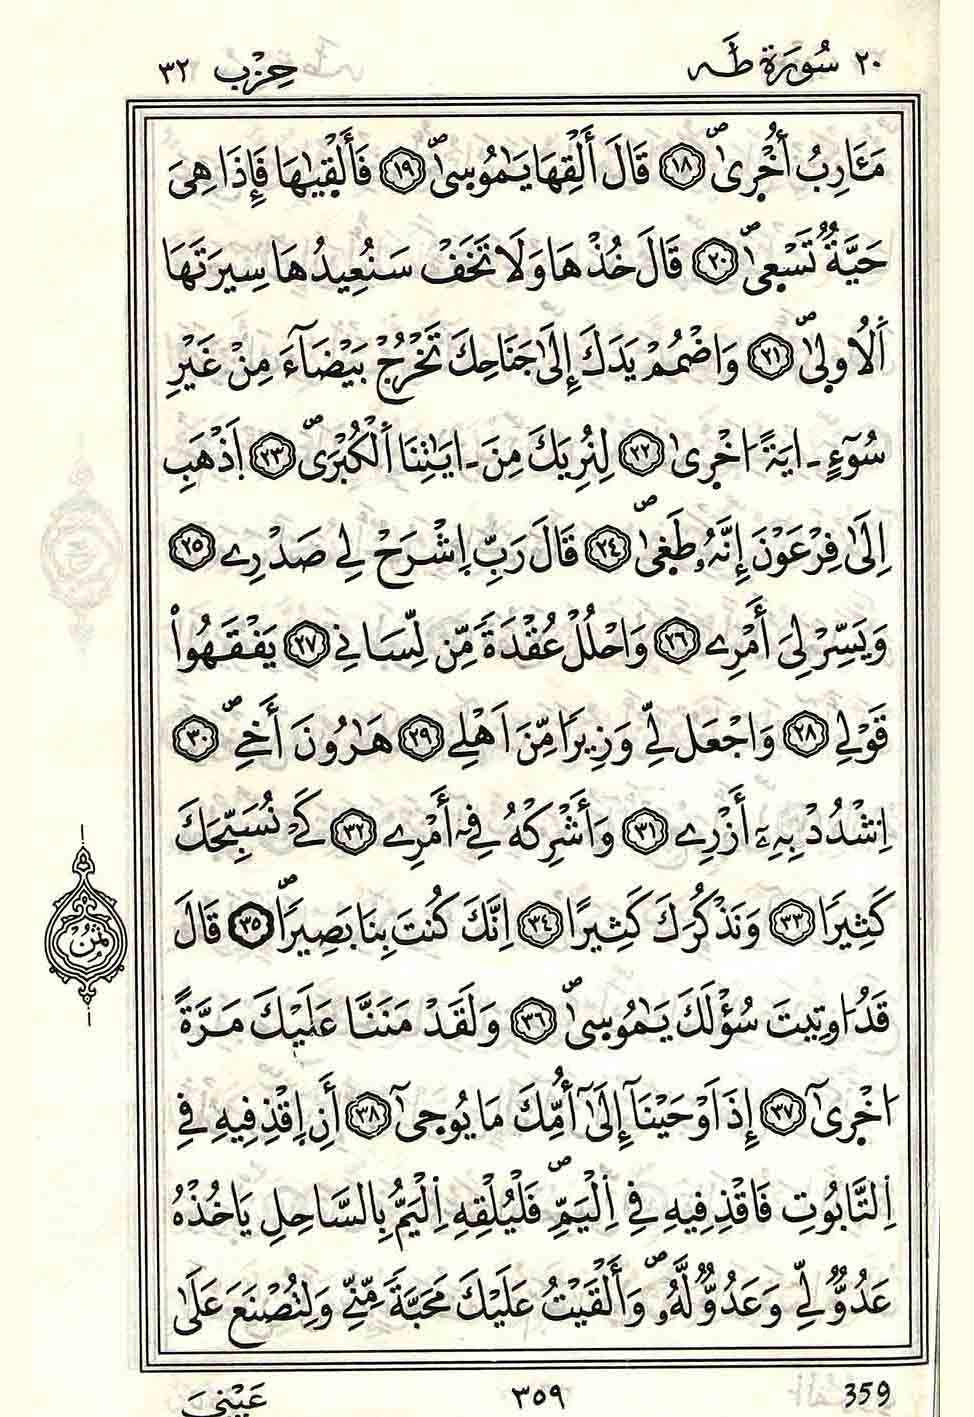 ٢٠ سُورَة طَه حِزْب ٣٢
مَـَٔارِبُ أُخْر۪يٰۖ ١٨ قَالَ أَلْقِهَا يَٰمُوس۪يٰۖ ١٩ فَأَلْق۪يٰهَا فَإِذَا هِيَ
حَيَّةٞ تَسْع۪يٰۖ ٢٠ قَالَ خُذْهَا وَلَا تَخَفْ سَنُعِيدُهَا سِيرَتَهَا
اَ۬لُاول۪يٰۖ ٢١ وَاضْمُمْ يَدَكَ إِلَىٰ جَنَاحِكَ تَخْرُجْ بَيْضَآءَ مِنْ غَيْرِ
سُوٓءٍ ـ ايَةً ا۟خْر۪يٰ ٢٢ لِنُرِيَكَ مِنَ ـ ايَٰتِنَا اَ۬لْكُبْرَىۖ ٢٣ اَ۪ذْهَبِ
إِلَىٰ فِرْعَوْنَ إِنَّهُۥ طَغ۪يٰۖ ٢٤ قَالَ رَبِّ اِ۪شْرَحْ لِے صَدْرِے ٢٥
وَيَسِّرْ لِيَ أَمْرِے ٢٦ وَاحْلُلْ عُقْدَةٗ مِّن لِّسَانِے ٢٧ يَفْقَهُواْ
قَوْلِے ٢٨ وَاجْعَل لِّے وَزِيراٗ مِّنَ اَهْلِے ٢٩ هَٰرُونَ أَخِےۖ ٣٠
اِ۟شْدُدْ بِهِۦٓ أَزْرِے ٣١ وَأَشْرِكْهُ فِےٓ أَمْرِے ٣٢ كَےْ نُسَبِّحَكَ
كَثِيراٗ ٣٣ وَنَذْكُرَكَ كَثِيراً ٣٤ اِنَّكَ كُنتَ بِنَا بَصِيراٗۖ ٣٥ قَالَ
قَدُ ا۟وتِيتَ سُؤْلَكَ يَٰمُوس۪يٰۖ ٣٦ وَلَقَدْ مَنَنَّا عَلَيْكَ مَرَّةً
ا۟خْر۪يٰٓ ٣٧ إِذَ اَوْحَيْنَآ إِلَىٰٓ أُمِّكَ مَا يُوح۪يٰٓ ٣٨ أَنِ اِ۪قْذِفِيهِ فِے
اِ۬لتَّابُوتِ فَاقْذِفِيهِ فِے اِ۬لْيَمِّۖ فَلْيُلْقِهِ اِ۬لْيَمُّ بِالسَّاحِلِ يَاخُذْهُ
عَدُوّٞ لِّے وَعَدُوّٞ لَّهُۥۖ وَأَلْقَيْتُ عَلَيْكَ مَحَبَّةٗ مِّنِّے وَلِتُصْنَعَ عَلَىٰ
ثُمُن
359 ٣٥٩ عَيْنِيَ